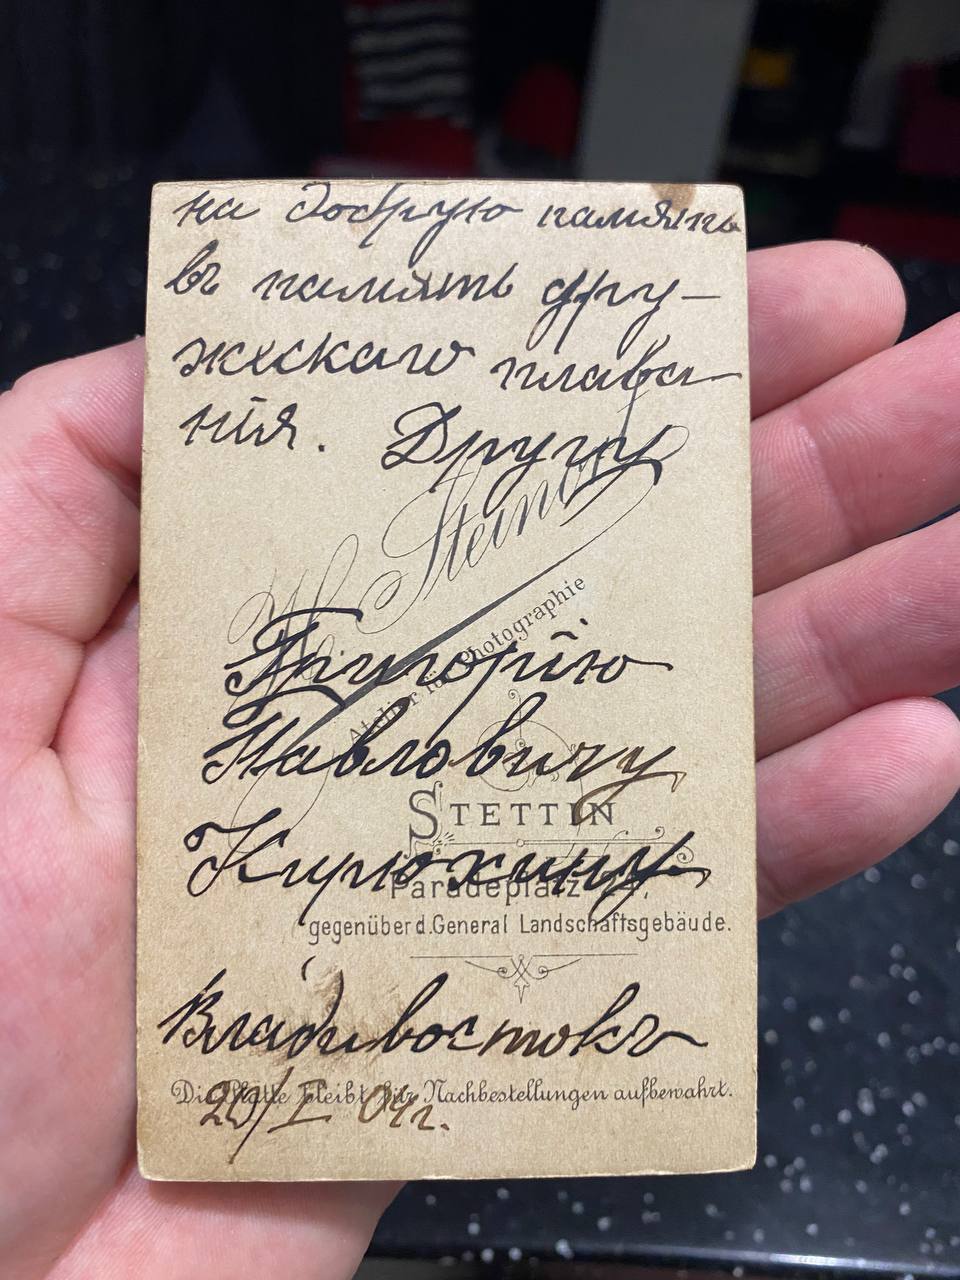 на добрую память
въ память дру-
жескаго плава-
нія. Другу
Stein
Atelier für Photographie
Григорію
Павловичу
STETTIN
Кирюхину
Paradeplatz
gegenüber d. General Landschaftsgebäude.
Владивостокъ
Die Platte bleibt für Nachbestellungen aufbewahrt.
20/I 04г.